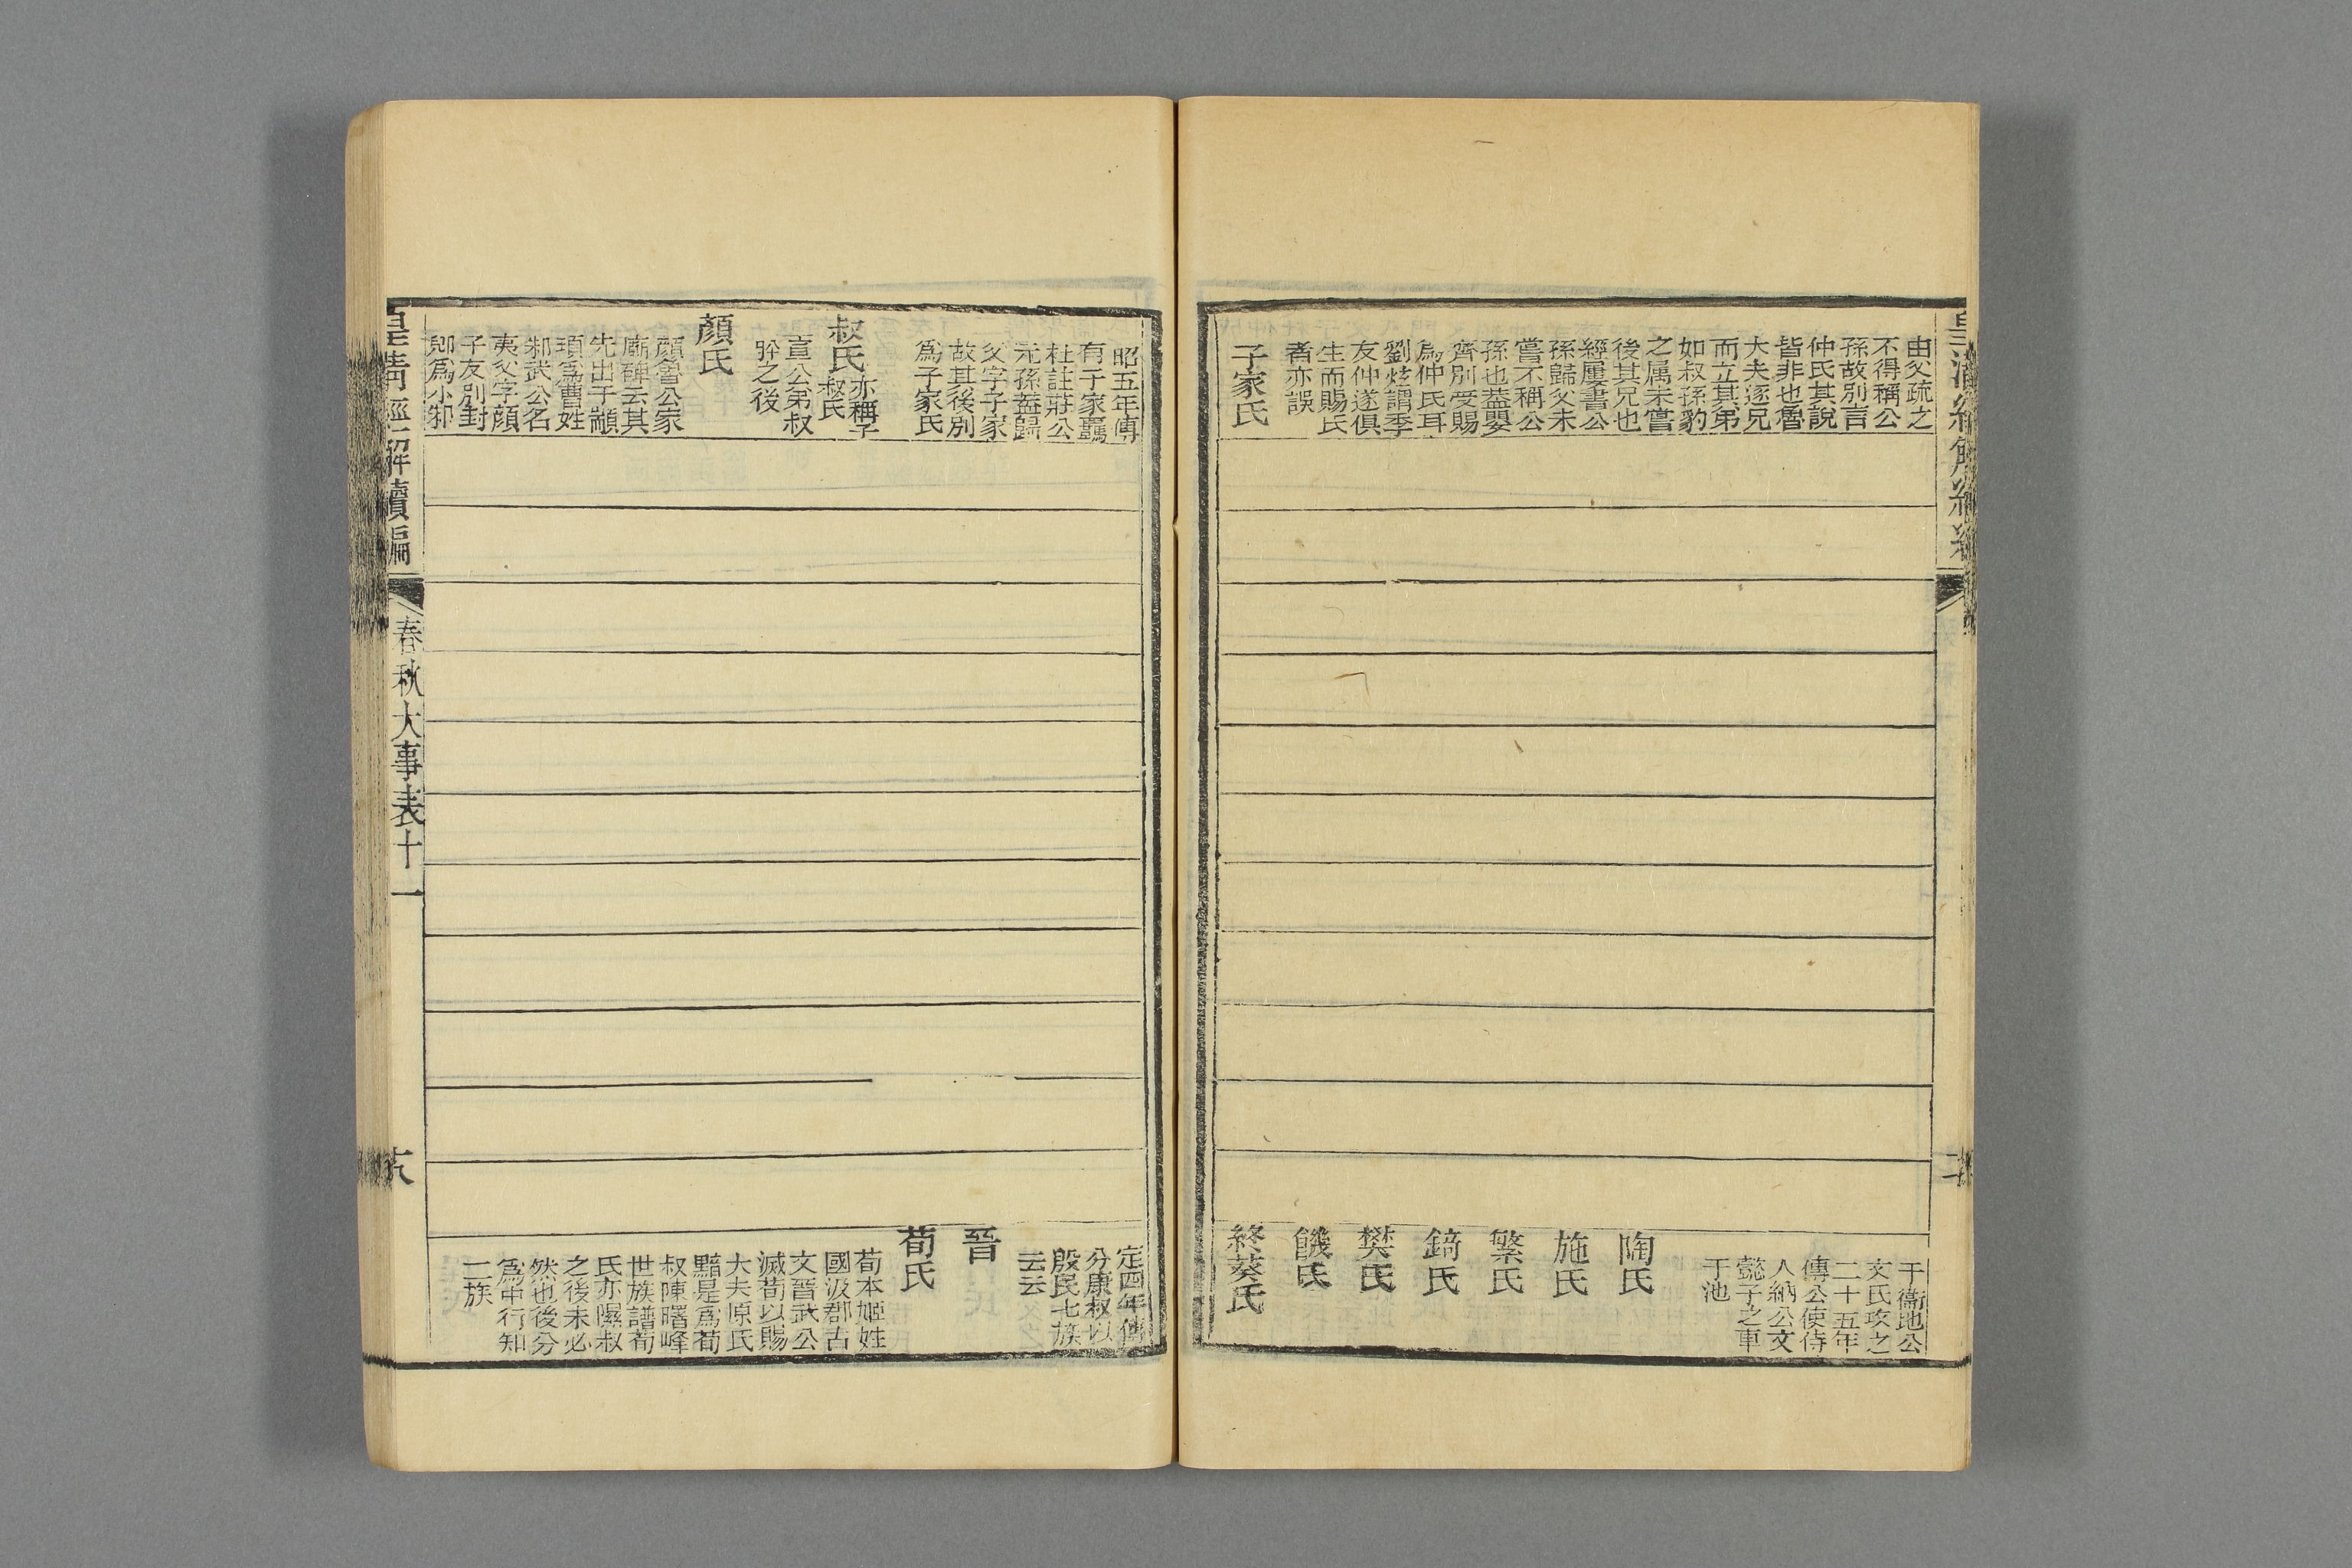 由父疏之
不得稱公
孫故別言
仲氏其說
皆非也魯
大夫逐兄
而立其弟
如叔孫豹
之属未嘗
後其兄也
經屢書公
孫歸父未
嘗不稱公
孫也蓋嬰
齊別受賜
爲仲氏耳
劉炫謂季
友仲遂俱
生而賜氏
者亦誤
子家氏
于衞地公
文氏攻之
二十五年
傳公使侍
人納公文
懿子之車
于池
陶氏
施氏
繁氏
錡氏
樊氏
饑氏
終葵氏
昭五年傳
有子家羈
杜註莊公
元孫蓋歸
父字子家
故其後別
爲子家氏
叔氏
亦稱子
叔氏
宣公弟叔
肸之後
顏氏
顏魯公家
廟碑云其
先出于顓
頊爲曹姓
邾武公名
夷父字顏
子友別封
郳爲小邾
定四年傳
分康叔以
殷民七族
云云
晉
荀氏
荀本姬姓
國汲郡古
文晉武公
滅荀以賜
大夫原氏
黯是爲荀
叔陳曙峰
世族譜荀
氏亦隰叔
之後未必
然也後分
爲中行知
二族
皇淸經解續編
春秋大事表十一